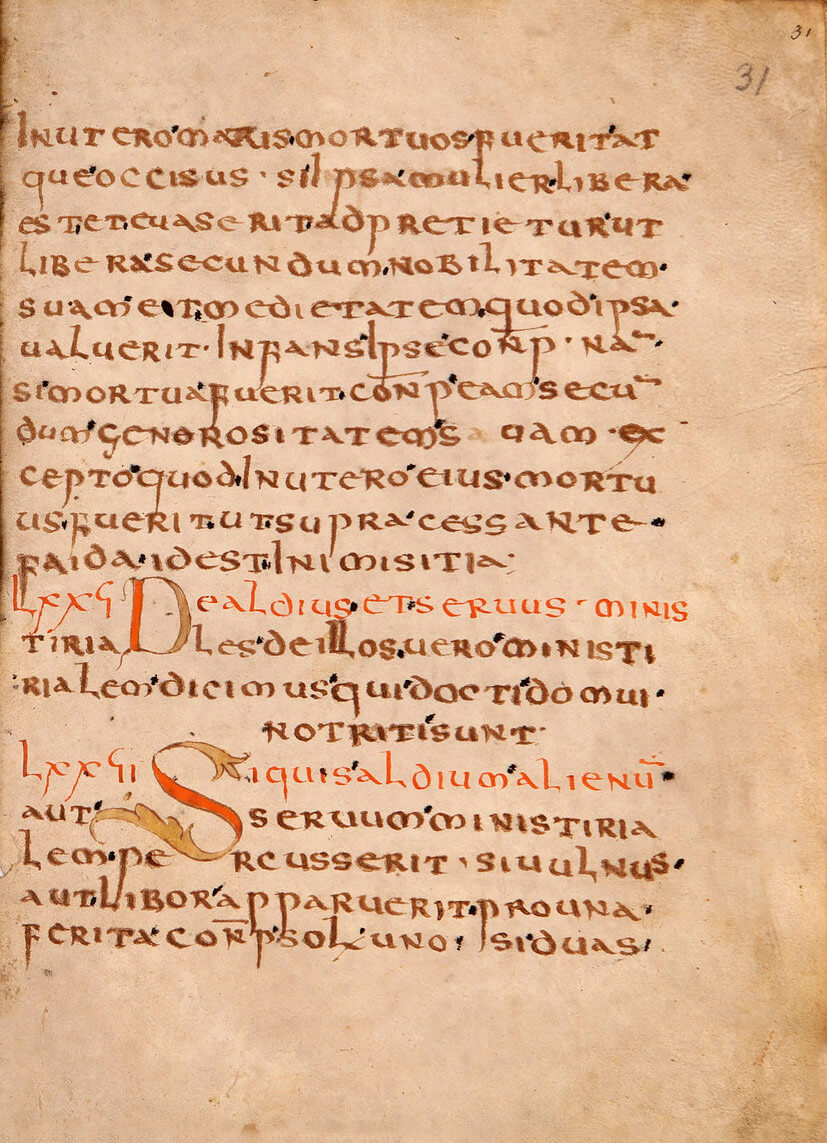 31
31
IN UTERO MATRIS MORTUOS FUERIT AT
QUE OCCISUS · SI IPSA MULIER LIBERA
EST ET EUASERIT ADPRETIETUR UT
LIBERA SECUNDUM NOBILITATEM
SUAM ET MEDIETATEM QUOD IPSA
UALUERIT · INFANS IPSE CONP · NA̅
SI MORTUA FUERIT CONP EAM SECU̅
DUM GENOROSITATEM S UAM EX
CEPTO QUOD IN UTERO EIUS MORTU
US FUERIT UT SUPRA CESSANTE
FAIDA ID EST INIMISITIA;
LXXVI DE ALDIUS ET SERUUS MINIS
TIRIALES DE ILLOS UERO MINISTI
RIALEM DICIMUS QUI DOCTI DOMUI
NOTRITI SUNT
LXXVII SI QUIS ALDIUM ALIENU̅
AUT SERUUM MINISTIRIA
LEM PERCUSSERIT · SI UULNUS
AUT LIBOR APPARUERIT PRO UNA
FERITA CONP SOL UNO SI DUAS